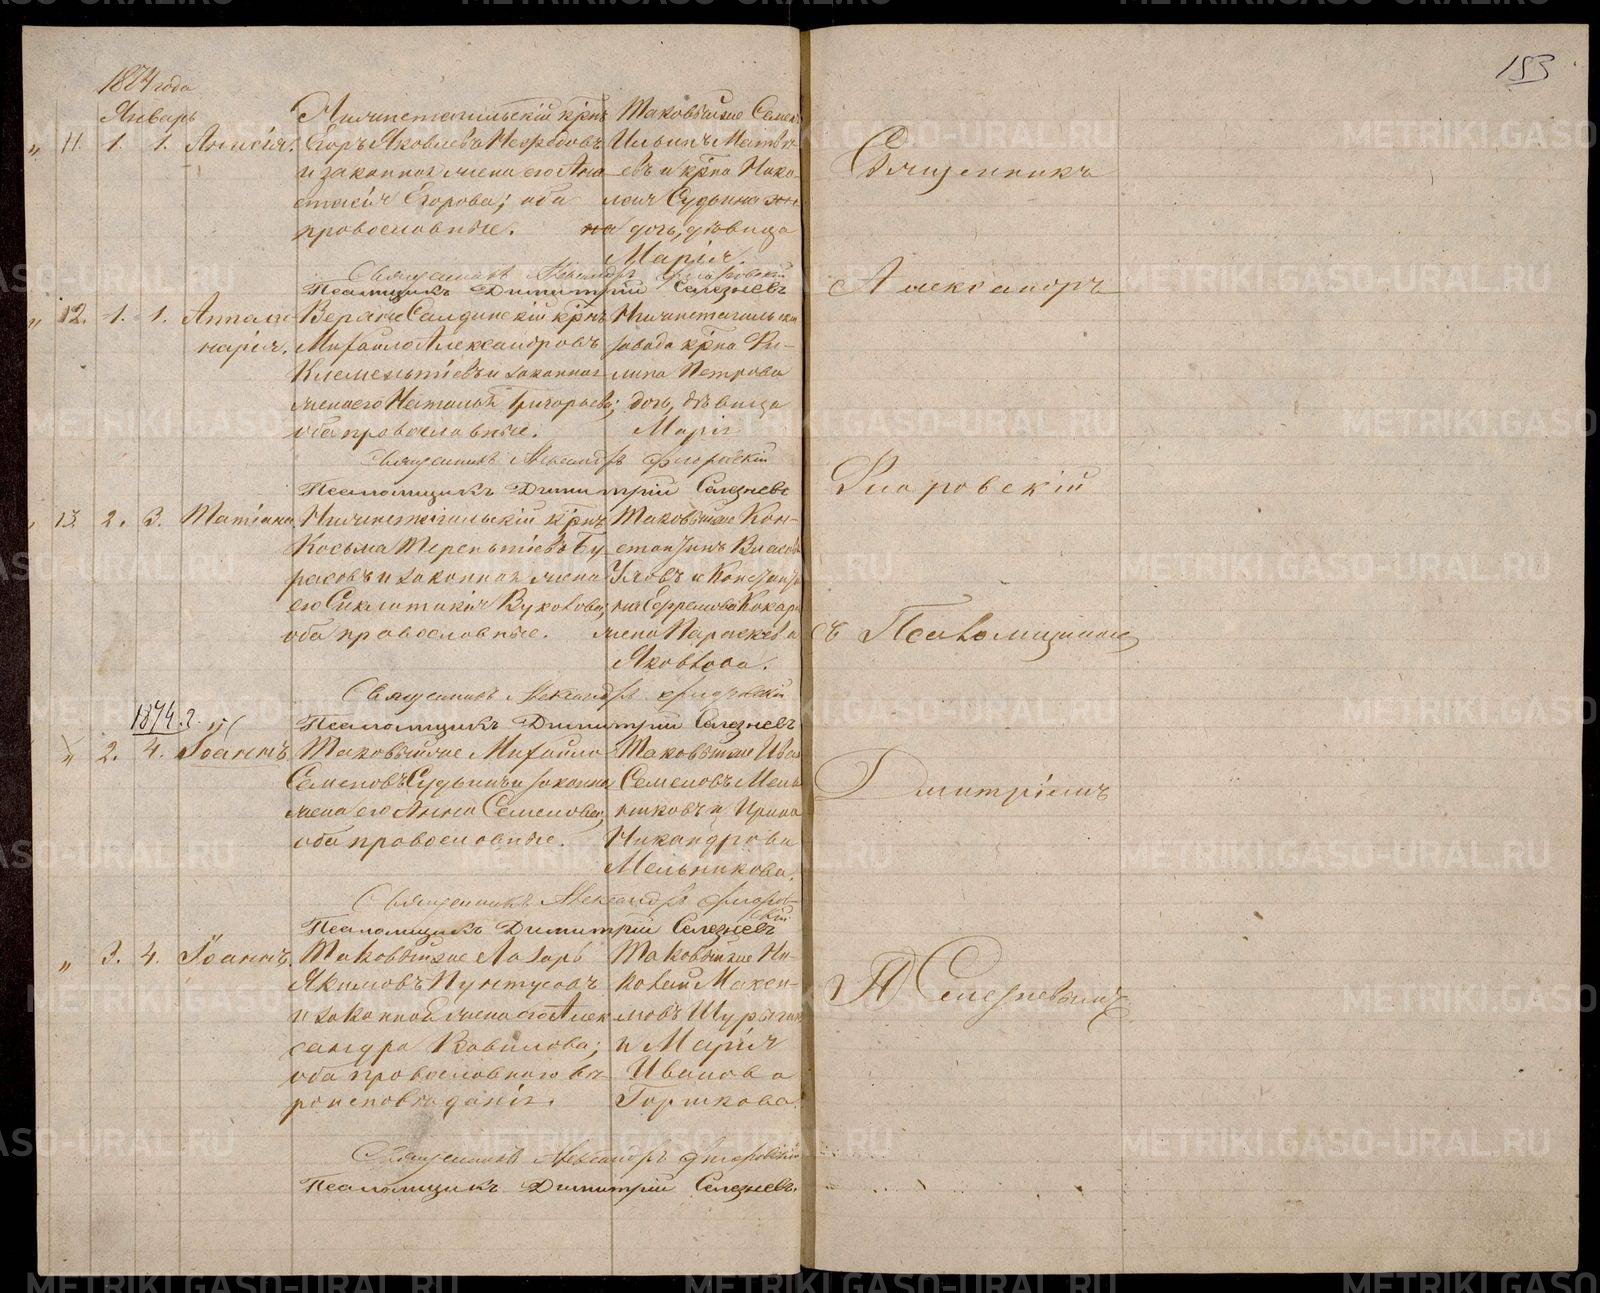 153
1874 года
Январь
" 11. 1. 1. Анисія.
Нижнетагильскій крнъ
Егоръ Яковлевъ Нефедовъ
и законная жена его Ана-
стасія Егорова; оба
православные.
Таковѣйше Семен
Ильинъ Матвѣ-
евъ и крна Нико-
лая Судьина
дочь, дѣвица
Марія.
Священникъ Александръ Флоровскій
Псаломщикъ Димитрій Селезневъ
" 12. 1. 1. Аполи-
нарія.
Верхне Салдинскій крнъ
Михаило Александровъ
Клементіевъ и законная
жена его Наталья Григорьева;
оба православные.
Нижнетагильска
завода крна Фи-
липа Петрова
дочь, дѣвица
Марія
Священникъ Александръ Флоровскій
Псаломщикъ Димитрій Селезневъ
13. 2. 3. Татіана
Нижнетагильскій крнъ
Косьма Терентіевъ Бу-
расовъ и законная жена
его Синклитикія Вуколова;
оба православные.
Таковѣйше Кон-
стантинъ Власовъ
Уловъ и Константи-
на Ефремова Кокар
жена Параскева
Яковлова.
Священникъ Александръ Флоровскій
Псаломщикъ Димитрій Селезневъ
1874. г.
2. 4. Іоаннъ
Таковѣйшіе Михаило
Семеновъ Судьинъ и законна
жена его Анна Семенова;
оба православные.
Таковѣйше Иван
Семеновъ Мель
никовъ и Ирина
Никандрова
Мельникова.
Священникъ Александръ Флоров-
скій
Псаломщикъ Димитрій Селезневъ
" 3. 4. Іоаннъ.
Таковѣйшіе Лазарь
Якимовъ Пунтусовъ
и законная жена его Алек
сандра Вавилова;
оба православнаго вѣ-
роисповѣданія.
Таковѣйше Ни-
колай Макси-
мовъ Шурыгин
и Марія
Иванова
Горшкова.
Священникъ Александръ Флоровскій
Псаломщикъ Димитрій Селезневъ.
Священникъ
Александръ
Флоровскій
съ Псаломщикомъ
Дмитріемъ
Селезневымъ
METRIKI.GASO-URAL.RU